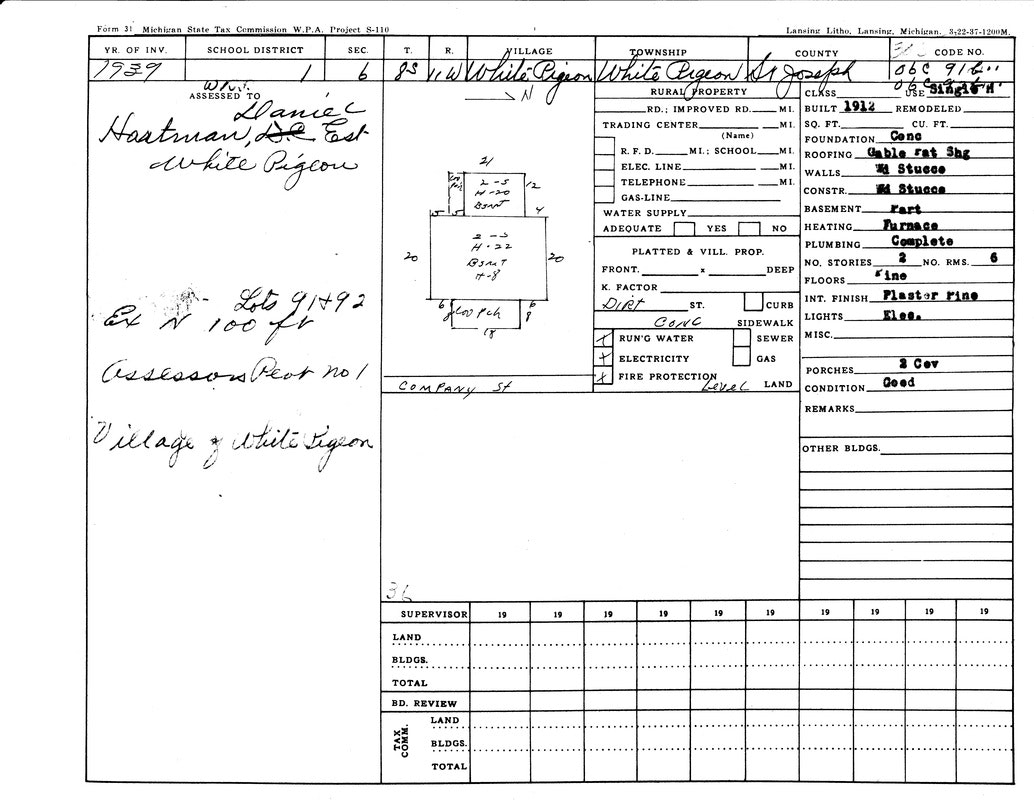 Form 31 Michigan State Tax Commission W.P.A. Project S-110
Lansing Litho, Lansing, Michigan. 3-22-37-1200M.
YR. OF INV. SCHOOL DISTRICT SEC. T. R. VILLAGE TOWNSHIP COUNTY CODE NO.
1939 1 6 8S 11W White Pigeon White Pigeon St Joseph 06C
ASSESSED TO
Daniel
Haatman, Est
White Pigeon
Lots 91+92
Ex N 100 ft
Assessors Plat no 1
Village of White Pigeon
N
21
2-S
H-20
BSMT
12
4
20
2-S
H-22
BSMT
H-8
20
6
Cov Pch
6
8
8
18
COMPANY St
36
RURAL PROPERTY
RD.; IMPROVED RD. MI.
TRADING CENTER MI.
(Name)
R. F. D. MI.; SCHOOL MI.
ELEC. LINE MI.
TELEPHONE MI.
GAS-LINE
WATER SUPPLY
ADEQUATE YES NO
PLATTED & VILL. PROP.
FRONT. x DEEP
K. FACTOR
DIRT ST. CURB
CONC SIDEWALK
RUN'G WATER SEWER
ELECTRICITY GAS
FIRE PROTECTION
Level LAND
CLASS USE Single H
BUILT 1912 REMODELED
SQ. FT. CU. FT.
FOUNDATION Conc
ROOFING Gable Pat Shg
WALLS Wd Stucco
CONSTR. Wd Stucco
BASEMENT Part
HEATING Furnace
PLUMBING Complete
NO. STORIES 2 NO. RMS. 6
FLOORS Pine
INT. FINISH Plaster Pine
LIGHTS Elec.
MISC.
PORCHES 2 Cov
CONDITION Good
REMARKS
OTHER BLDGS.
SUPERVISOR 19 19 19 19 19 19 19 19 19 19 19
LAND
BLDGS.
TOTAL
BD. REVIEW
TAX COMM.
LAND
BLDGS.
TOTAL